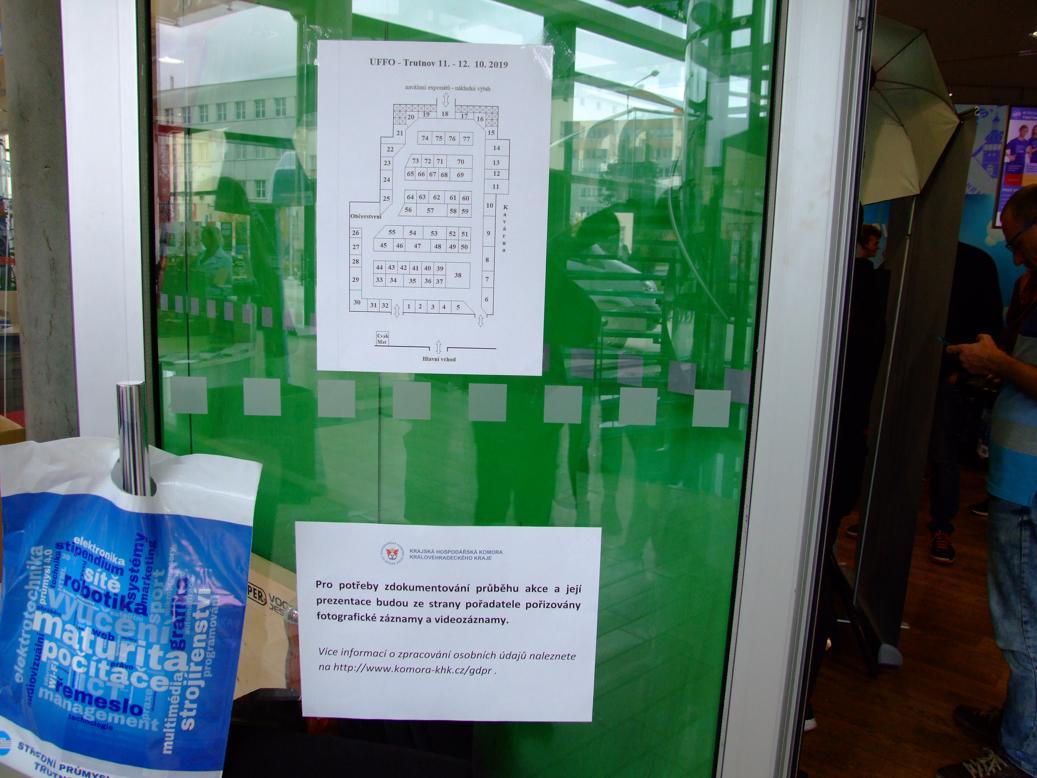 UFFO - Trutnov 11. - 12. 10. 2019
navážení exponátů - nákladní výtah
20 19 18 17 16
21 15
74 75 76 77
22 14
23 73 72 71 70 13
65 66 67 68 69 12
24 11
25 64 63 62 61 60 10
56 57 58 59
Občerstvení
Kavárna
26 55 54 53 52 51 9
27 45 46 47 48 49 50
28 44 43 42 41 40 39 38 8
29 33 34 35 36 37 7
30 31 32 1 2 3 4 5 6
Hlavní vchod
KRAJSKÁ HOSPODÁŘSKÁ KOMORA
KRÁLOVÉHRADECKÉHO KRAJE
Pro potřeby zdokumentování průběhu akce a její
prezentace budou ze strany pořadatele pořizovány
fotografické záznamy a videozáznamy.
Více informací o zpracování osobních údajů naleznete
na http://www.komora-khk.cz/gdpr .
elektronika
stipendium
sítě
robotik
systémy
marketing
sport
elektrotechnika
průmysl 4.0
vyučení
web
maturita
počítače
ICT
řemeslo
management
technologie
audiovizuální
Wi-Fi
grafika
multimédia
strojírenství
programování
STŘEDNÍ PRŮMYS
TRUTN